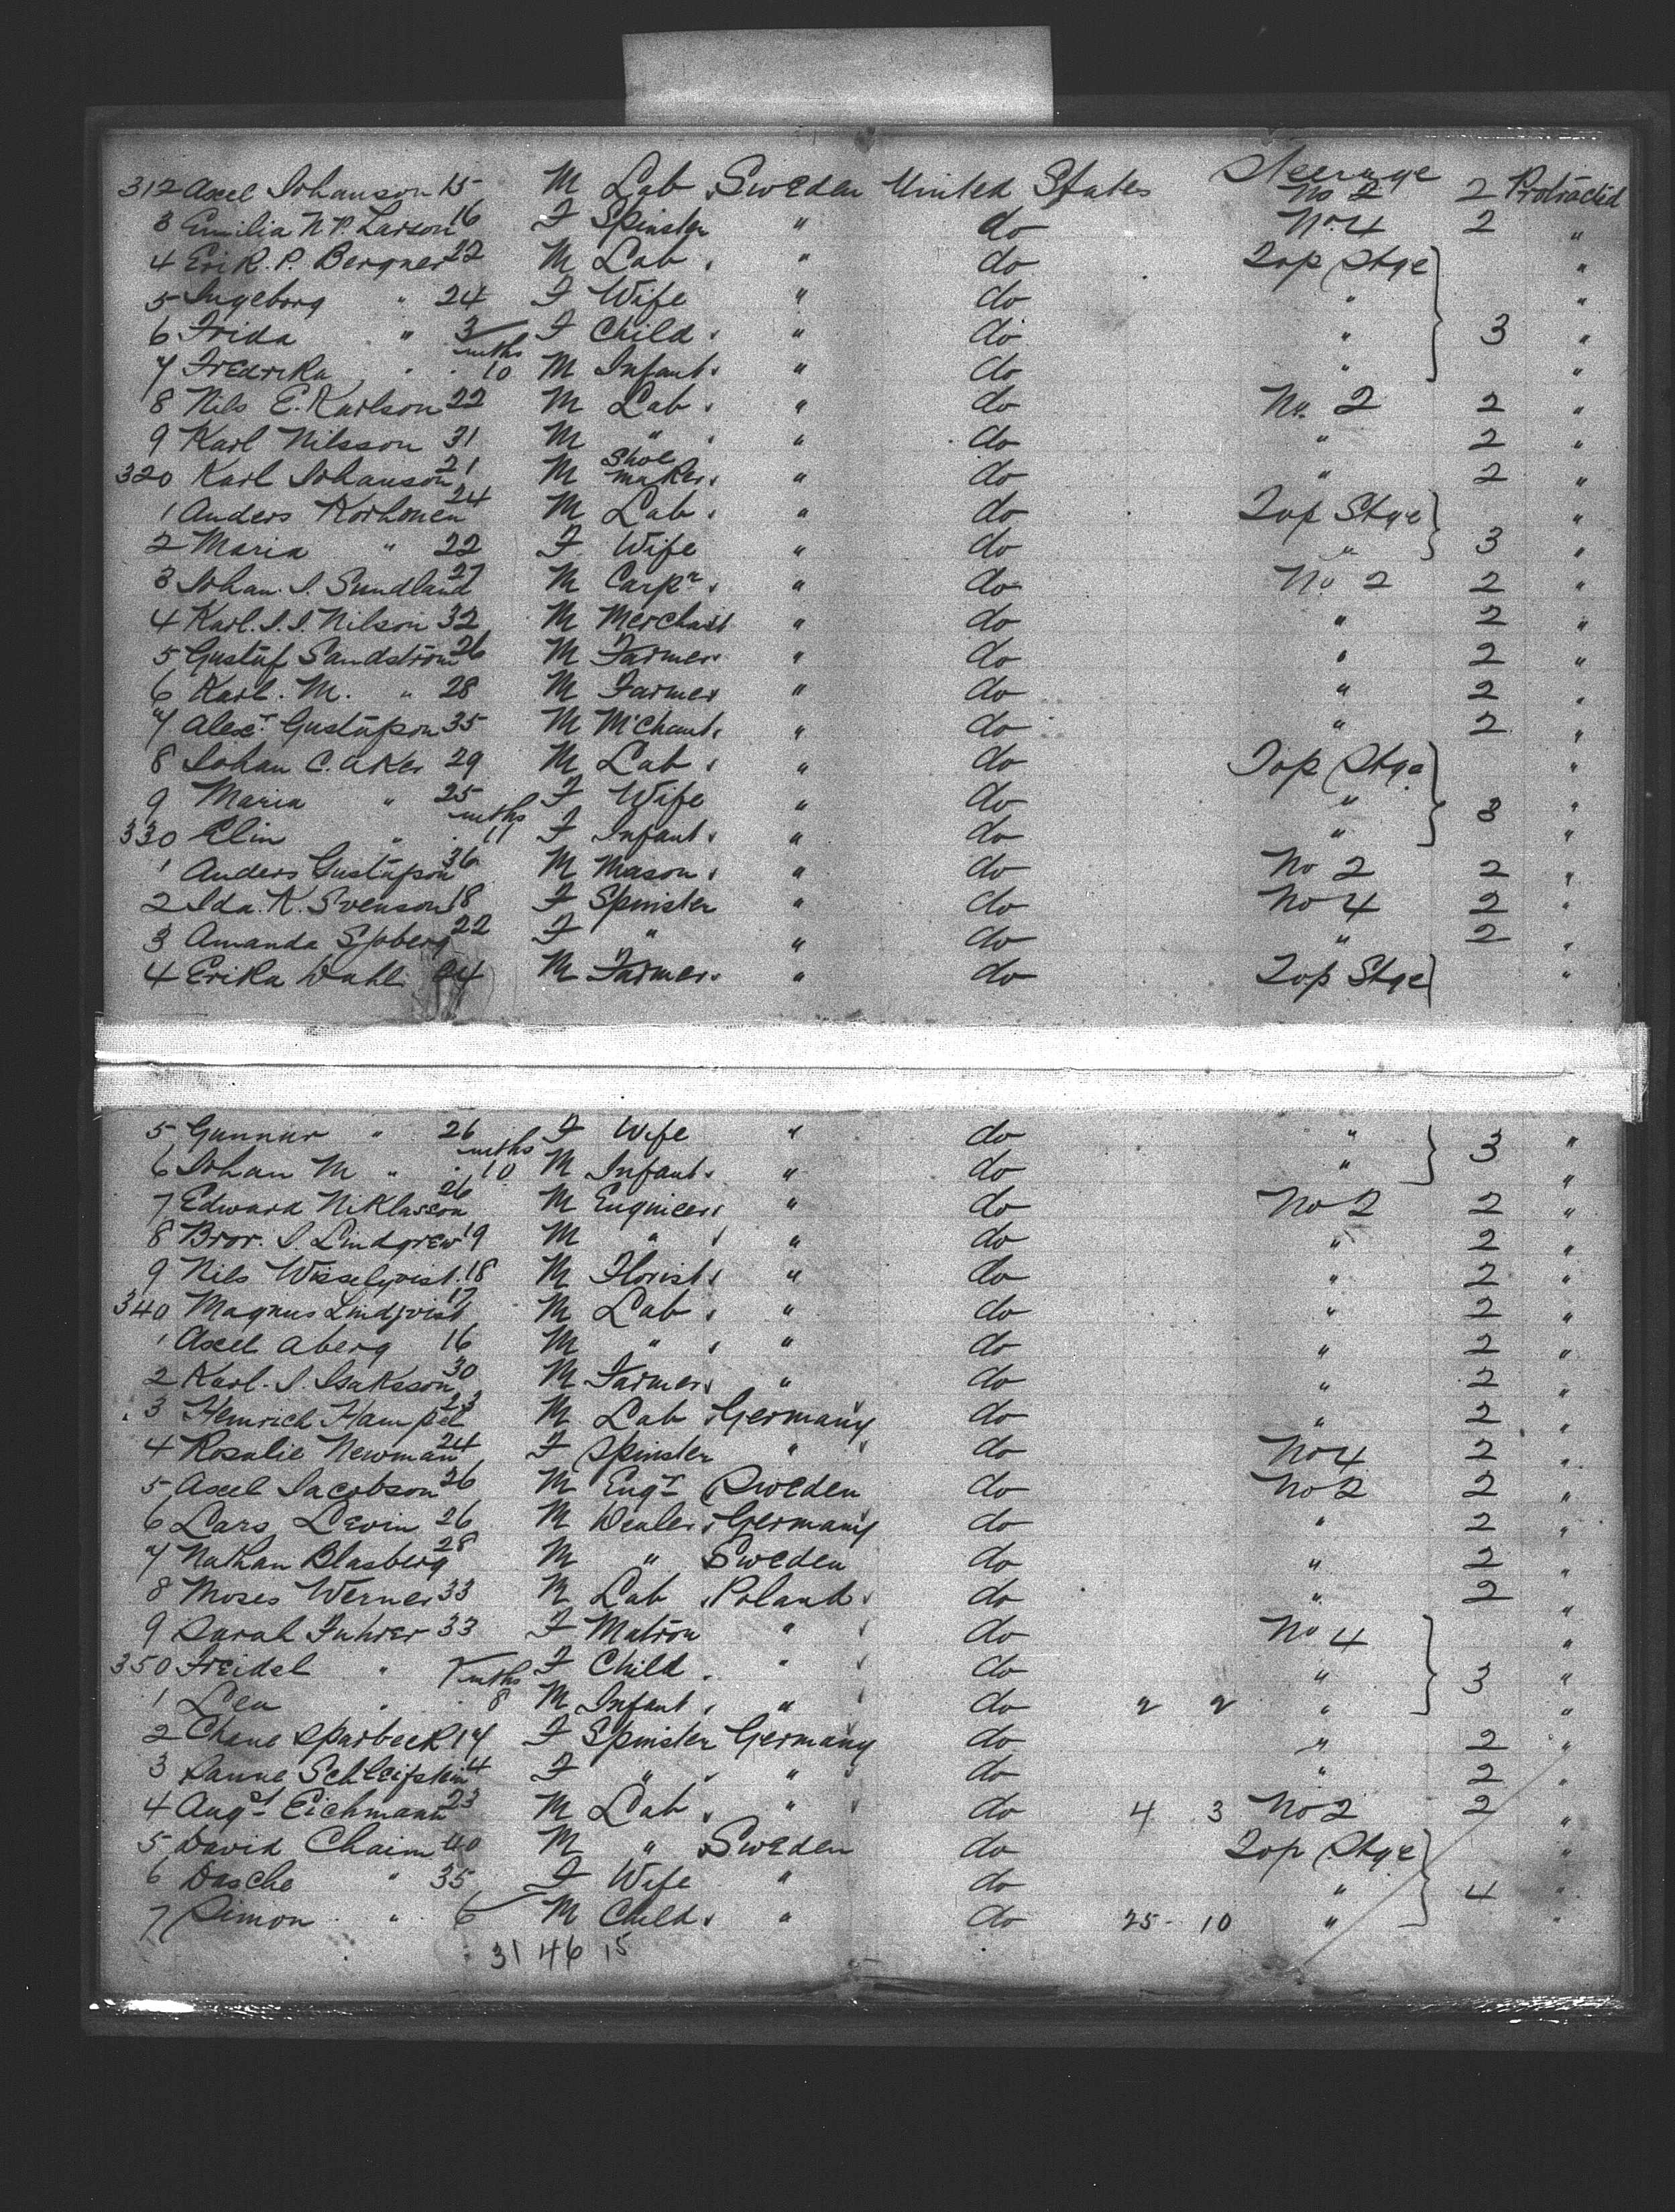 312 Axel Johanson 15 M Lab. Sweden United States Steerage No 2 2 Protracted
3 Emilia N.P. Larson 16 F Spinster " do No. 4 2 "
4 Erik. P. Bergner 22 M Lab. " do Top Stge "
5 Ingeborg " 24 F Wife " do " "
6 Frida " 3 F Child. " do " 3 "
7 Fredrika " mths 10 M Infant. " do " "
8 Nils E. Karlson 22 M Lab. " do No. 2 2 "
9 Karl Nilsson 31 M " " do " 2 "
320 Karl Johanson 21 M Shoe maker. " do " 2 "
1 Anders Korhonen 24 M Lab. " do Top Stge "
2 Maria " 22 F. Wife " do " 3 "
3 Johan. I. Sundland 27 M Carpr. " do No 2 2 "
4 Karl. I. I. Nilson 32 M Merchant " do " 2 "
5 Gustaf Sandström 26 M Farmer. " do " 2 "
6 Karl. M. " 28 M Farmer " do " 2 "
7 Alexr. Gustafson 35 M M'Chant. " do " 2 "
8 Johan C. Aker 29 M Lab. " do Top Stge "
9 Maria " 25 F Wife " do " 3 "
330 Elin " mths 11 F Infant. " do " "
1 Anders Gustafson 36 M Mason. " do No 2 2 "
2 Ida. K. Svenson 18 F Spinster " do No 4 2 "
3 Amanda Sjoberg 22 F " " do " 2 "
4 Erika Dahl 24 M Farmer. " do Top Stge "
5 Gunnar " 26 F Wife " do " 3 "
6 Johan M " mths 10 M Infant. " do " "
7 Edward Niklasson 26 M Engineer. " do No 2 2 "
8 Bror. I Lindgrew 19 M " " do " 2 "
9 Nils Wisselqvist. 18 M Florist. " do " 2 "
340 Magnus Lindqvist 17 M Lab. " do " 2 "
1 Axel Aberg 16 M " " do " 2 "
2 Karl. I. Isaksson 30 M Farmer. " do " 2 "
3 Heinrich Hampel 23 M Lab. Germany do " 2 "
4 Rosalie Newman 24 F Spinster " do No 4 2 "
5 Axel Jacobson 26 M Engr. Sweden do No 2 2 "
6 Lars Levin 26 M Dealer. Germany do " 2 "
7 Nathan Blasberg 28 M " Sweden do " 2 "
8 Moses Werner 33 M Lab. Poland. do " 2 "
9 Sarah Fuhrer 33 F Matron " do No 4 "
350 Freidel " F Child. " do " 3 "
1 Lea " mths 8 M Infant. " do 2 2 " "
2 Chane Sparbeck 17 F Spinster Germany do " 2 "
3 Sanne Schleifstein F " " do " 2 "
4 Augst Eichmann 23 M Lab. " do 4 3 No 2 2 "
5 David Chaim 40 M " Sweden do Top Stge "
6 Dasche " 35 F Wife " do " 4 "
7 Simon " 6 M Child. " do 25 - 10 " "
31 46 15